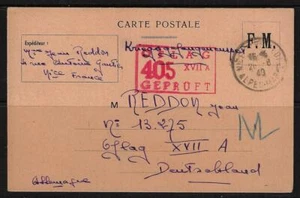 CARTE POSTALE
Expéditeur :
Mme Jean Reddon
Nice
France
Kriegsgefangenenpost
F. M.
405
XVII A
GEPRÜFT
M REDDON Jean
No 13.275
Oflag XVII A
Deutschland
Allemagne